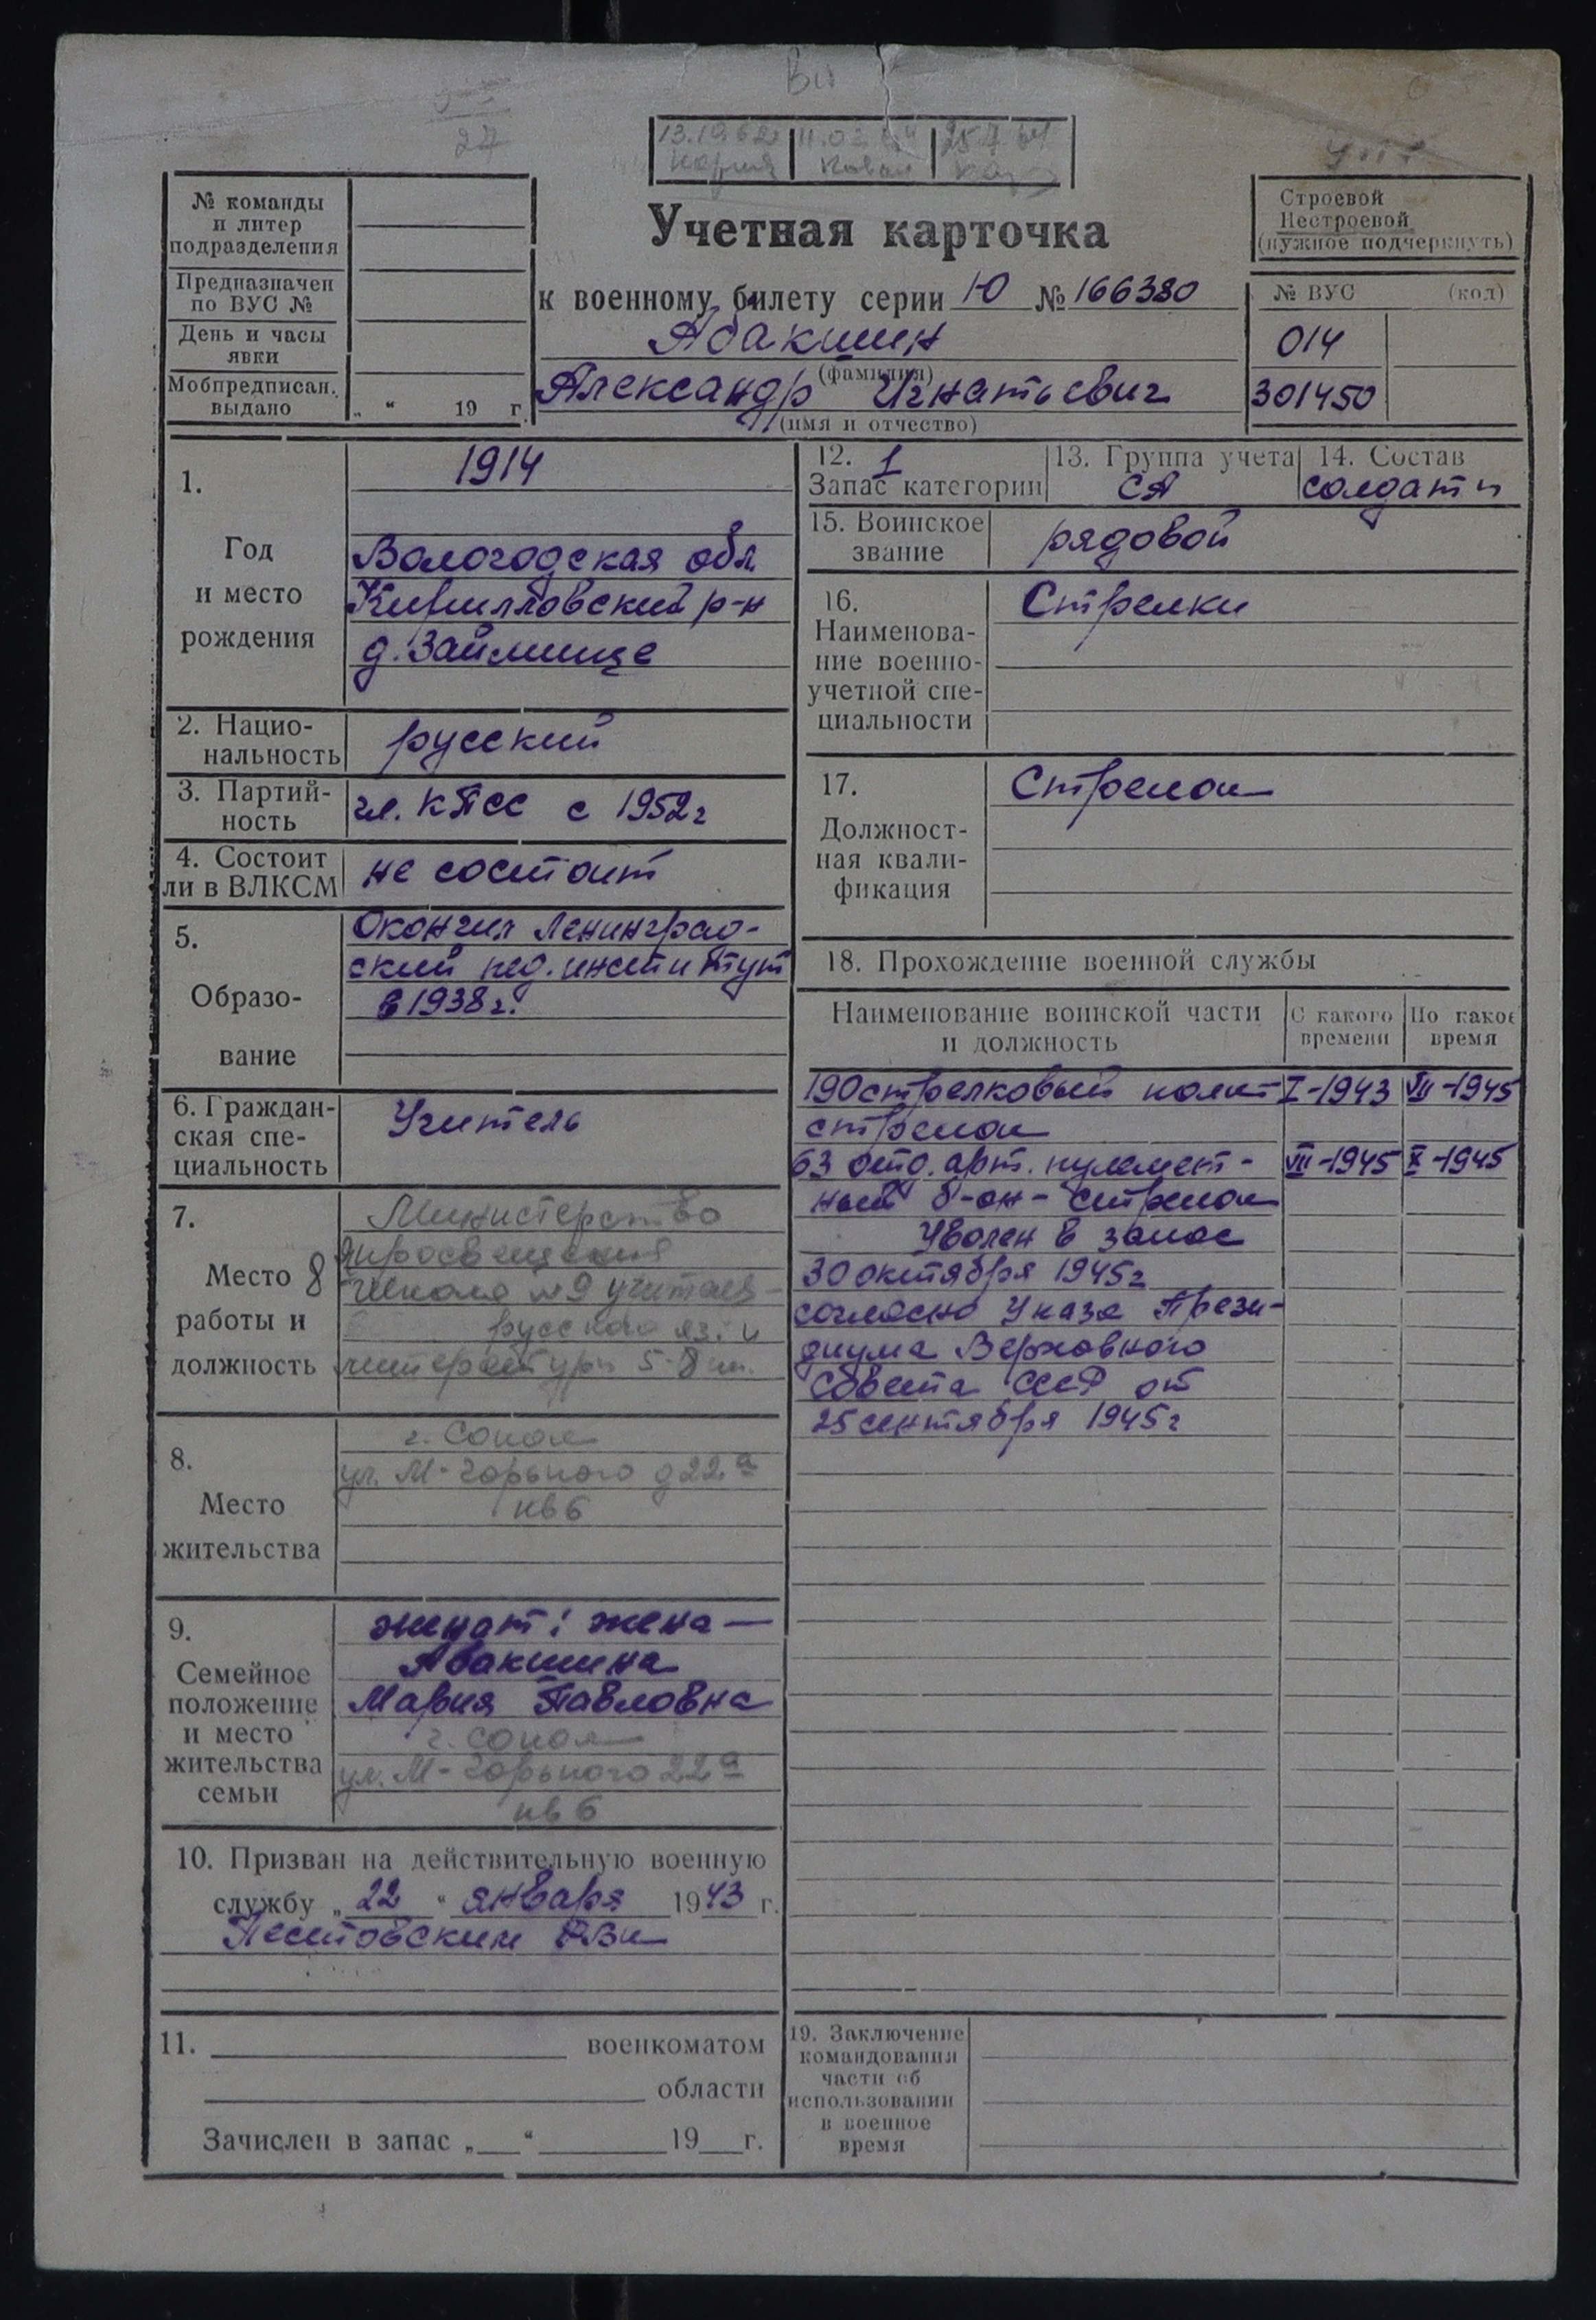 Вк
27
13.10.62 11.02.64 25.7.64
Учетная карточка
к военному билету серии Ю № 166380
Абакшин
(фамилия)
Александр Игнатьевич
(имя и отчество)
№ команды
и литер
подразделения
Предназначен
по ВУС №
День и часы
явки
Мобпредписан.
выдано „ “ 19 г.
Строевой
Нестроевой
(нужное подчеркнуть)
№ ВУС (код)
014
301450
1.
Год
и место
рождения
1914
Вологодская обл.
Кирилловский р-н
д. Займище
2. Нацио-
нальность
русский
3. Партий-
ность
чл. КПСС с 1952г
4. Состоит
ли в ВЛКСМ
не состоит
5.
Образо-
вание
Окончил Ленинград-
ский пед. институт
в 1938г.
6. Граждан-
ская спе-
циальность
Учитель
7.
Место
работы и
должность
8
Министерство
просвещения
Школа №9 учитель
русского яз. и
литературы 5-8 кл.
8.
Место
жительства
г. Сокол
ул. М-Горького д22а
кв6
9.
Семейное
положение
и место
жительства
семьи
женат: жена —
Абакшина
Мария Павловна
г. Сокол
ул. М-Горького 22а
кв6
10. Призван на действительную военную
службу „22“ января 1943 г.
Пестовским РВК
11. военкоматом
области
Зачислен в запас „ “ 19 г.
12. 1
Запас категории
13. Группа учета
СА
14. Состав
солдаты
15. Воинское
звание
рядовой
16.
Наименова-
ние военно-
учетной спе-
циальности
Стрелки
17.
Должност-
ная квали-
фикация
Стрелок
18. Прохождение военной службы
Наименование воинской части
и должность
С какого
времени
По какое
время
190 стрелковый полк I-1943 VII-1945
стрелок
63 отд. арт. пулемет- VII-1945 X-1945
ный б-он - стрелок
Уволен в запас
30 октября 1945г
согласно Указа Прези-
диума Верховного
Совета СССР от
25 сентября 1945г
19. Заключение
командования
части об
использовании
в военное
время